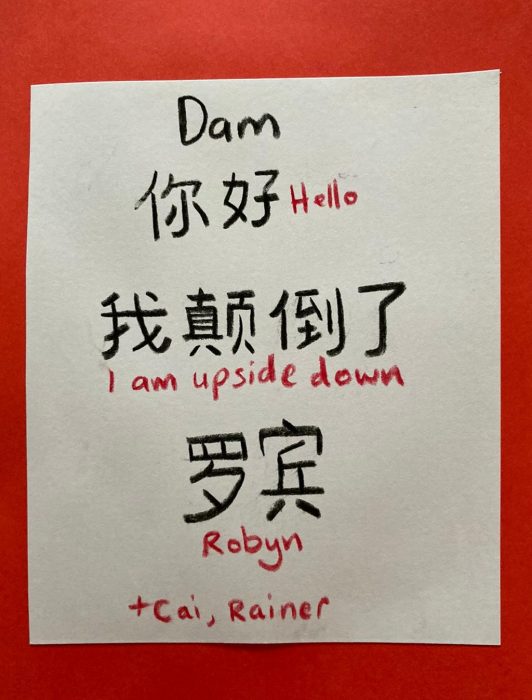 Dam
你好 Hello
我颠倒了
I am upside down
罗宾
Robyn
+Cai, Rainer